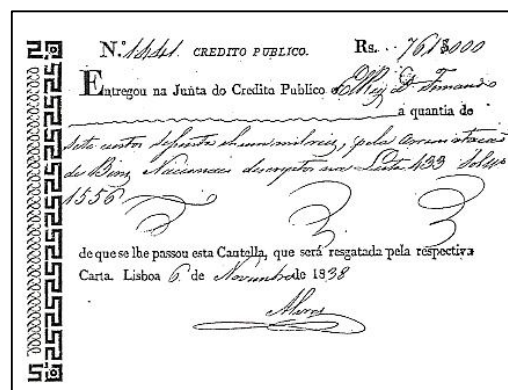 N.º 1441. CREDITO PUBLICO. Rs... 761$000
Entregou na Junta do Credito Publico ElRei D. Fernando
a quantia de
sete centos sessenta e hum mil reis, pela arrematação
de Bens Nacionaes descriptos na Lista 433
1556
de que se lhe passou esta Cautella, que será resgatada pela respectiva
Carta. Lisboa 6 de Novembro de 1838